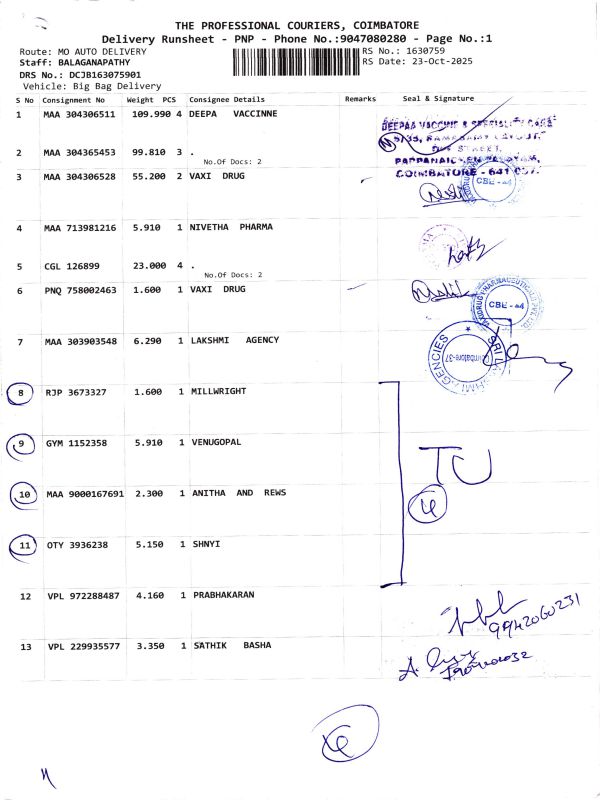 THE PROFESSIONAL COURIERS, COIMBATORE
Delivery Runsheet - PNP - Phone No.:9047080280 - Page No.:1
Route: MO AUTO DELIVERY RS No.: 1630759
Staff: BALAGANAPATHY RS Date: 23-Oct-2025
DRS No.: DCJB163075901
Vehicle: Big Bag Delivery
S No Consignment No Weight PCS Consignee Details Remarks Seal & Signature
1 MAA 304306511 109.990 4 DEEPA VACCINNE
DEEPAA VACCINE & SPECIALITY CARE
5/35, RAMASAMY LAYOUT,
2 MAA 304365453 99.810 3 .
No.Of Docs: 2
PAPPANAICKEN PALAYAM,
COIMBATORE - 641 037.
3 MAA 304306528 55.200 2 VAXI DRUG
CBE - 44
4 MAA 713981216 5.910 1 NIVETHA PHARMA
5 CGL 126899 23.000 4 .
No.Of Docs: 2
6 PNQ 758002463 1.600 1 VAXI DRUG
CBE - 44
7 MAA 303903548 6.290 1 LAKSHMI AGENCY
SRI LAKSHMI AGENCIES
Coimbatore-37
8 RJP 3673327 1.600 1 MILLWRIGHT
9 GYM 1152358 5.910 1 VENUGOPAL
TU
10 MAA 9000167691 2.300 1 ANITHA AND REWS
11 OTY 3936238 5.150 1 SHNYI
12 VPL 972288487 4.160 1 PRABHAKARAN
9942060231
13 VPL 229935577 3.350 1 SATHIK BASHA